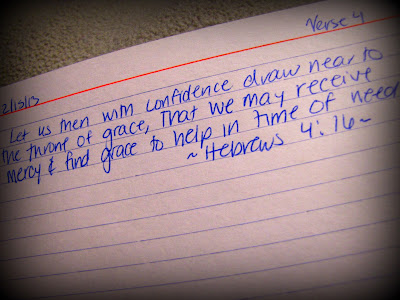 Verse 4
2/13/13
Let us then with confidence draw near to
the throne of grace, That we may receive
mercy & find grace to help in time of need
~Hebrews 4:16~